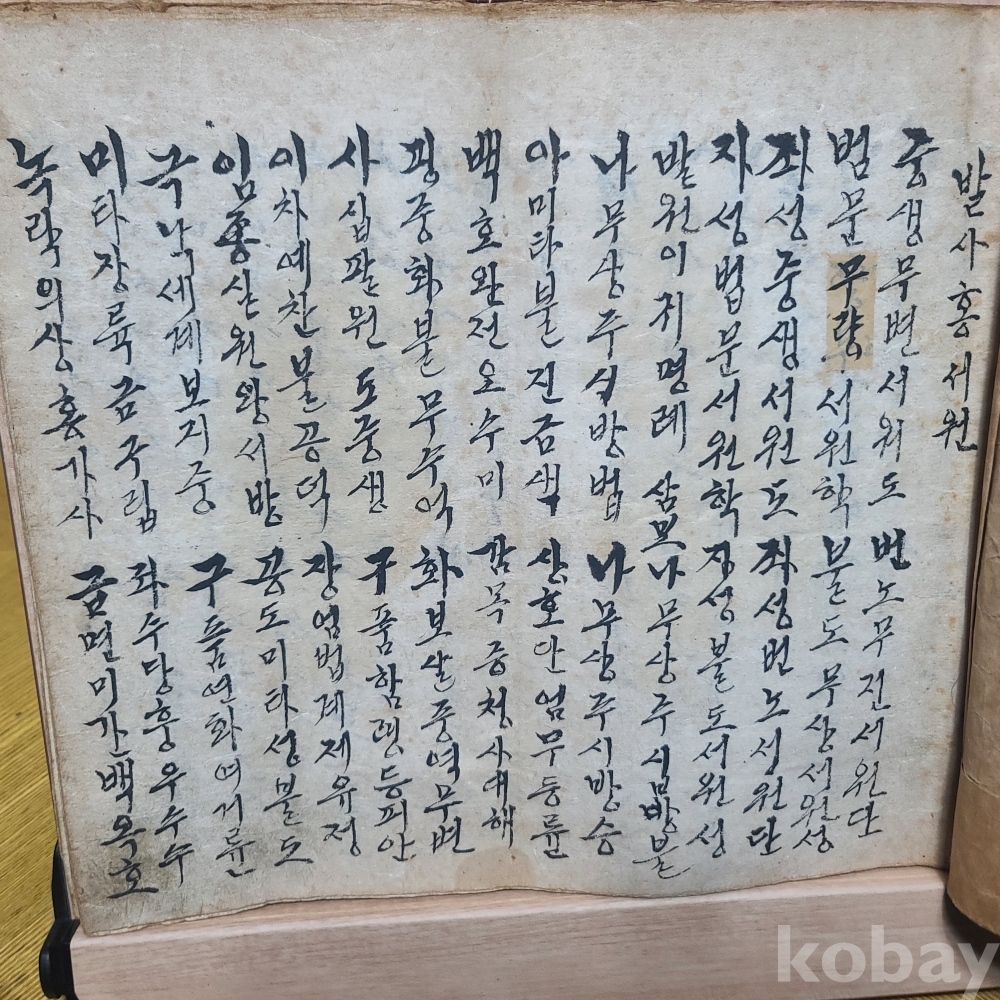 발사홍서원
중생무변서원도 번노무진서원단
법문무량서원학 불도무상서원성
좌성중생서원도 좌성번노서원단
자성법문서원학 자성불도서원성
발원이귀명례 삼보 나무상주시방불
나무상주시방법 나무상주시방승
아미타불진금색 상호단엄무등륜
백호완전오수미 감목증청사대해
광중화불무수억 화보살중역무변
사십팔원도중생 구품함령등피안
이차예찬불공덕 장엄법계제유정
임종실원왕서방 공도미타성불도
극낙세계보지중 구품연화여거륜
미타장륙금구립 좌수당흉우수수
녹락의상홍가사 금면미간백옥호
kobay